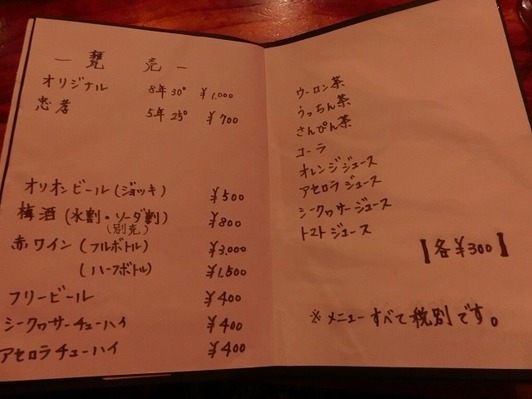 ー 甕 売 ー
オリジナル 8年 30° ¥1,000
忠孝 5年 25° ¥700
オリオンビール(ジョッキ) ¥500
梅酒(水割・ソーダ割) ¥800
(別売)
赤ワイン(フルボトル) ¥3,000
(ハーフボトル) ¥1,500
フリービール ¥400
シークワサーチューハイ ¥400
アセロラチューハイ ¥400
ウーロン茶
うっちん茶
さんぴん茶
コーラ
オレンジジュース
アセロラジュース
シークワサージュース
トマトジュース
【各¥300】
※メニューすべて税別です。